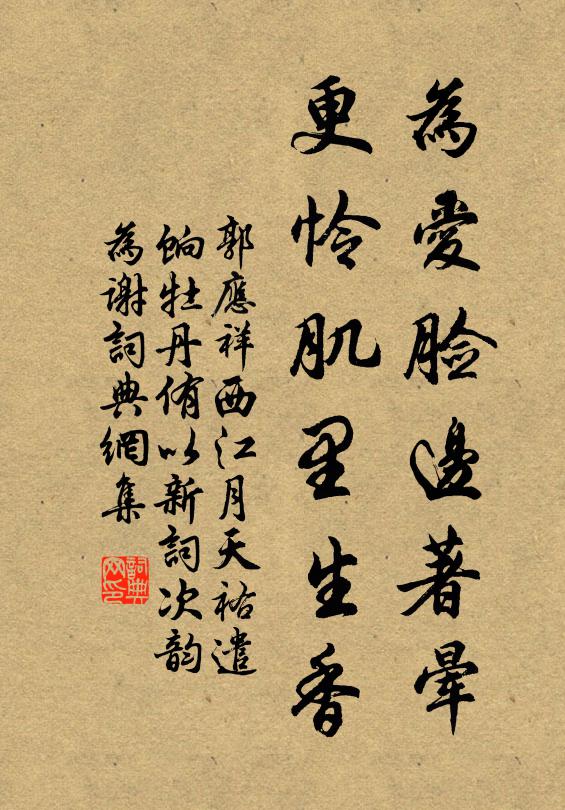 為愛臉邊著暈
更怜肌里生香
郭應祥西江月天祐遣
餉牡丹侑以新詞次韵
為謝詞典網集
詞典
网印